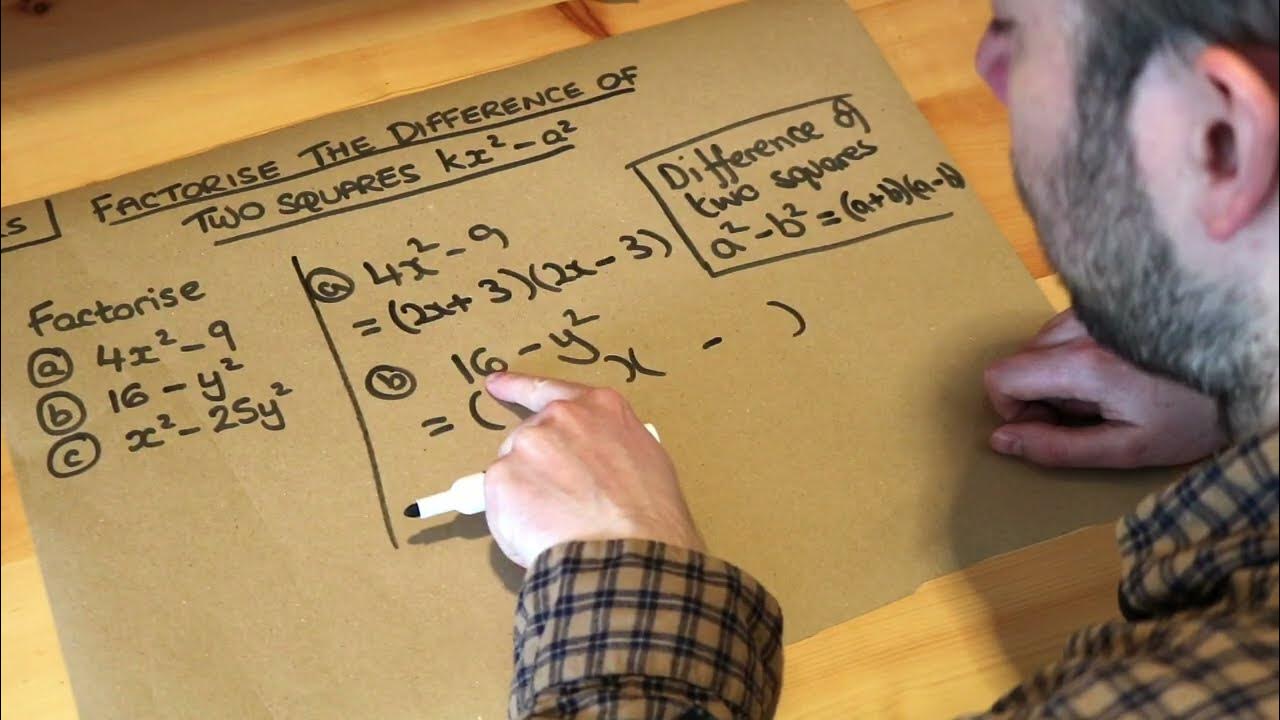 FACTORISE THE DIFFERENCE OF
TWO SQUARES kx² - a²
Difference of
two squares
a² - b² = (a+b)(a-b)
Factorise
(a) 4x² - 9
(b) 16 - y²
(c) x² - 25y²
(a) 4x² - 9
= (2x + 3)(2x - 3)
(b) 16 - y²
= ( )( - )